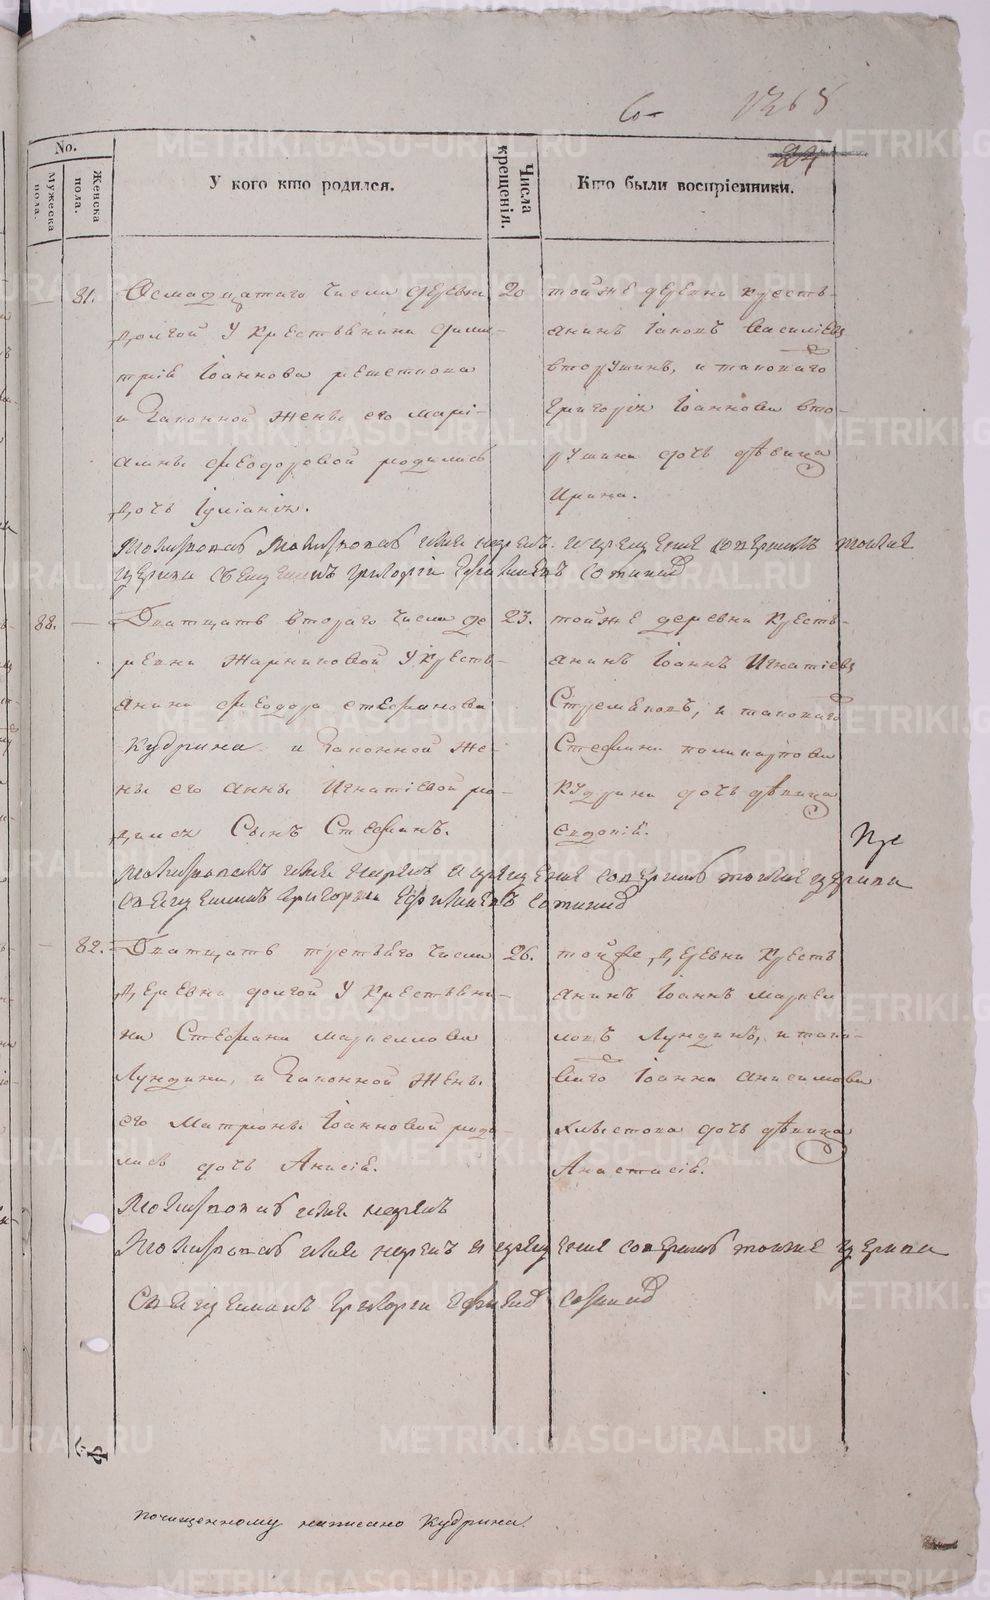 1368
24
No.
Мужеска пола.
Женска пола.
У кого кто родился.
Числа крещенія.
Кто были воспріемники.
81.
Осмагццатаго числа деревни
Долгой У Крестьянина Дими-
трія Іоаннова решеткова
и Законной Жены его Марі-
амны Феодоровой родилась
дочь Іуліанія.
20
тойже деревни кресть-
анинъ Іаковъ Василіевъ
вторушинъ, и таковаго
Григорія Іоаннова вто-
рушина дочь дѣвица
Ирина.
Молитвовалъ имя нарекъ и крещеніе совершилъ тойже
церкви священникъ григорій
88.
Дватцать втораго числа де
ревни Жарниковой У Кресть-
янина Феодора стефанова
Кудрина и Законной Же-
ны его Анны Игнатіевой ро-
дился Сынъ Стефанъ.
23.
тойже деревни Кресть-
янинъ Іоаннъ Игнатіевъ
и таковаго
Стефана поликарпова
Кудрина дочь дѣвица
Евдокія.
молитвовалъ имя нарекъ и крещеніе совершилъ тойже церкви
священникъ григорій
82.
Дватцать третьяго числа
Деревни долгой У Крестьяни-
на Стефана маркеллова
Лундина, и Законной Жены
его Матроны Іоанновой роди-
лась дочь Анисія.
26.
тойже деревни Кресть
янинъ Іоаннъ маркел
ловъ Лундинъ, и тако-
ваго Іоанна Анисимова
Хлыстова дочь дѣвица
Анастасія.
Молитвовалъ имя нарекъ
Молитвовалъ имя нарекъ и крещеніе совершилъ тойже церкви
Священникъ григорій
почищенному написано Кудрина.
METRIKI.GASO-URAL.RU